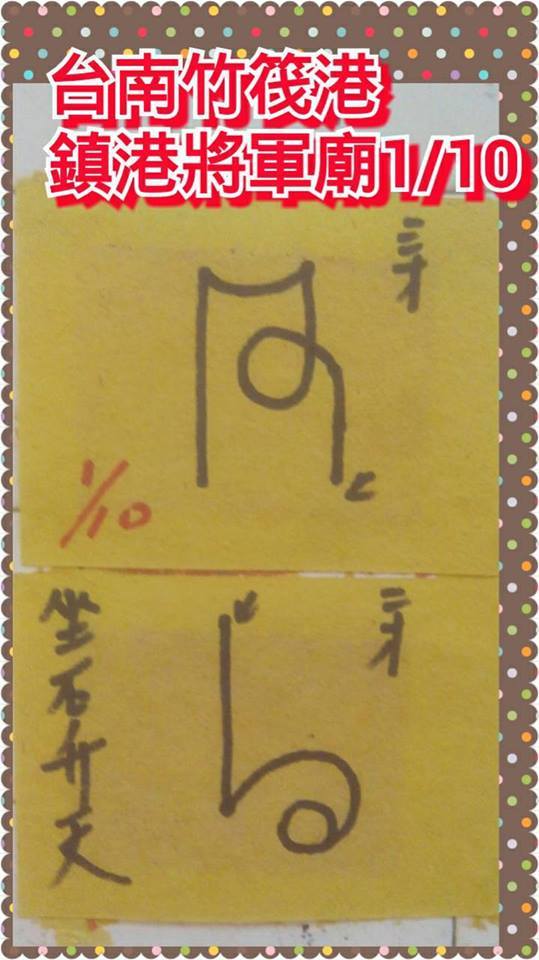 台南竹筏港
鎮港將軍廟1/10
1/10
坐石升天